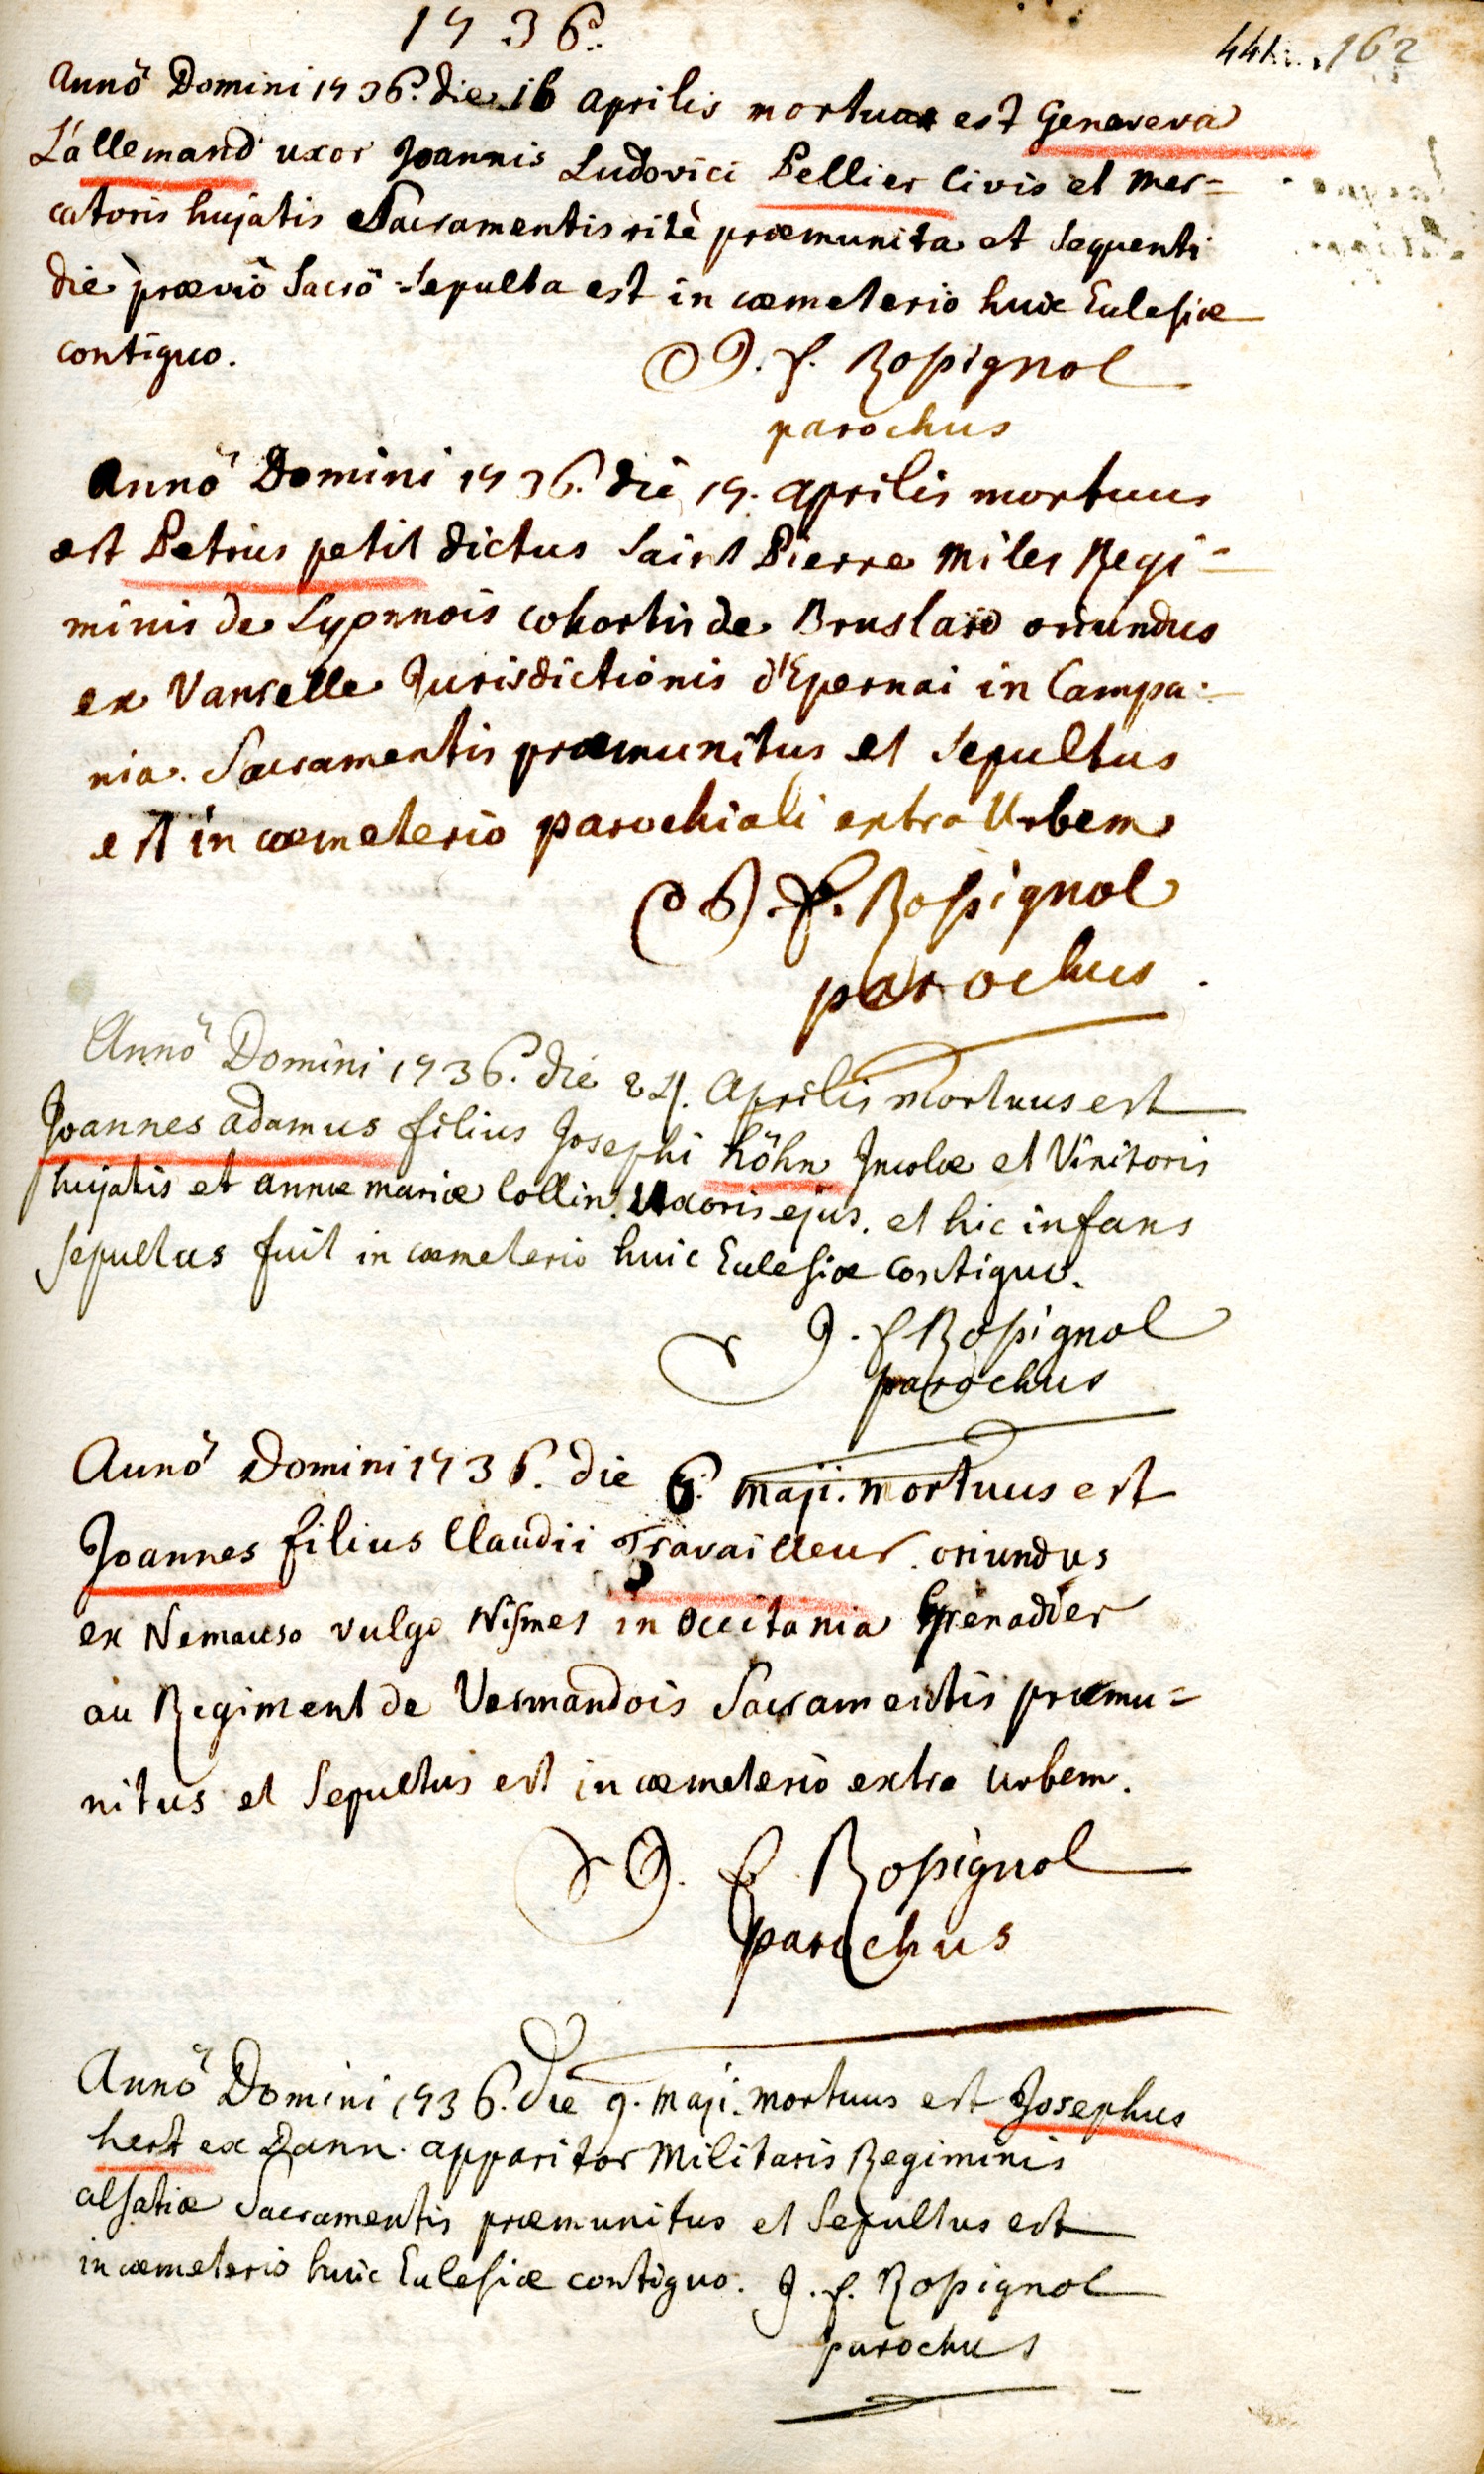 1736.
441. 162
Annô Domini 1736. die 16 aprilis mortua est Genoveva
L'allemand uxor Joannis Ludovici Pellier Civis et mer=
catoris hujatis Sacramentis ritè præmunita et sequenti
die præviô Sacrô sepulta est in cœmeterio huic Ecclesiæ
contiguo.
J. f. Rossignol
parochus
Annô Domini 1736. die 17. aprilis mortuus
est Petrus petit dictus Saint Pierre Miles Regi=
minis de Lyonnois cohortis de Bruslard oriundus
ex Vanselle Jurisdictionis d'Epernai in Campa=
nia. Sacramentis præmunitus et Sepultus
est in cœmeterio parochiali extra Urbem
J. f. Rossignol
parochus.
Annô Domini 1736. die 24. Aprilis mortuus est
Joannes adamus filius Josephi höhn Incolæ et Vinitoris
hujatis et annæ mariæ Collin. Uxoris ejus. et hic infans
sepultus fuit in cœmeterio huic Ecclesiæ contiguo.
J. f Rossignol
parochus
Annô Domini 1736. die 6. maji. mortuus est
Joannes filius Claudii Travailleur. oriundus
ex Nemauso vulgo Nismes in occitania Grenadier
au Regiment de Vermandois Sacramentis præmu=
nitus et Sepultus est in cœmeterio extra urbem.
J. f Rossignol
parochus
Annô Domini 1736. die 9. maji. mortuus est Josephus
hert ex Dann. apparitor Militaris Regiminis
alsatiæ Sacramentis præmunitus et Sepultus est
in cœmeterio huic Ecclesiæ contiguo. J. f. Rossignol
parochus